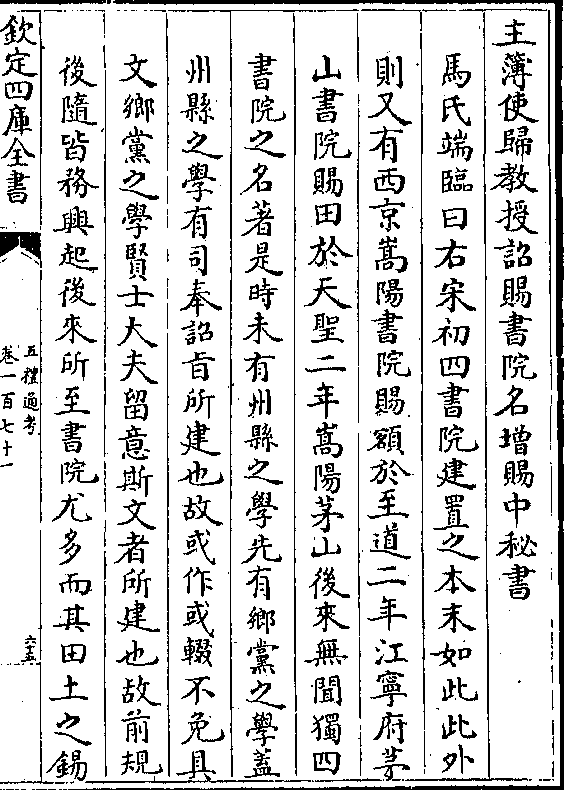 主簿使歸教授詔賜書院名增賜中秘書
馬氏端臨曰右宋初四書院建置之本末如此此外
則又有西京嵩陽書院賜額於至道二年江寧府茅
山書院賜田於天聖二年嵩陽茅山後來無聞獨四
書院之名著是時未有州縣之學先有鄉黨之學蓋
州縣之學有司奉詔旨所建也故或作或輟不免具
文鄉黨之學賢士大夫留意斯文者所建也故前規
後隨皆務興起後來所至書院尤多而其田土之錫
欽定四庫全書
五禮通考
卷一百七十一
六五